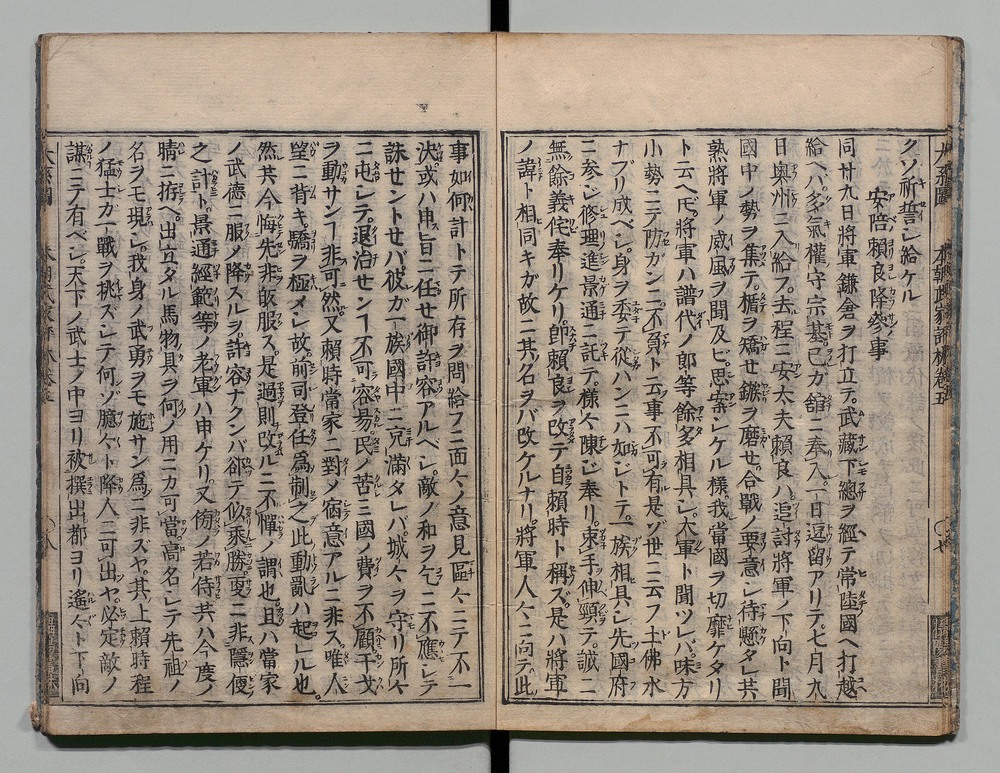 クソ祈誓シ給ケル
安陪頼良降參事
同廿九日將軍鎌倉ヲ打立テ。武藏下總ヲ經テ常陸國ヘ打越
給ヘバ。多氣權守宗基。己ガ舘ニ奉入。一日逗留アリテ。七月九
日奥州ニ入給フ。去程ニ安大夫頼良ハ。追討將軍ノ下向ト聞
國中ノ勢ヲ集テ。楯ヲ矯セ鏃ヲ磨セ。合戰ノ要意シ待懸タレ共
熟將軍ノ威風ヲ聞及ビ思案シケル樣。我當國ヲ切靡ケタリ
ト云ヘ𪜈。將軍ハ譜代ノ郎等餘多相具シ。大軍ト聞ツレバ。味方
小勢ニテ防ガンニ。不負トニ云事不可有。是ゾ世ニ云フ土佛水
ナブリ成ベシ。身ヲ委テ從ハンニハ如ジトテ。一族相具シ先國府
ニ參シ。修理進景通ニ託テ。樣々陳ジ奉リ。束手伸頸テ。誠ニ
無餘義侘奉リケリ。即頼良ヲ改テ自頼時ト稱ズ。是ハ將軍
ノ諱ト相同キガ故ニ。其名ヲバ改ケルナリ。將軍人々ニ向テ。此
事如何計トテ所存ヲ問給フニ。面々ノ意見區々ニテ不一
決。或ハ申旨ニ任セ御許容アルベシ。敵ノ和ヲ乞ニ不應シテ
誅セントセバ。彼ガ一族國中ニ充滿タレバ。城々ヲ守リ所々
ニ屯シテ。退治センヿ不可容易。民ノ苦ミ國ノ費ヲ不顧。干戈
ヲ動サンヿ非可然。又頼時當家ニ對メ宿意アルニ非ス。唯人
望ニ背キ驕ヲ極メシ故。前司登任爲制之。此動亂ハ起シル也。
然共今悔先非皈服ス。是過則改ルニ不憚ノ謂也。且ハ當家
ノ武德ニ服メ降スルヲ。許容ナクンバ。却テ似乘勝。更ニ非隱便
之計ト。景通經範等ノ老軍ハ申ケリ。又傍ノ若侍共ハ。今度ノ
晴ニ拵ヘ出立タル馬物具ヲ。何ノ用ニカ可當。高名シテ先祖ノ
名ヲモ現シ。我身ノ武勇ヲモ施サン爲ニ非ズヤ。其上賴時程
ノ猛士カ。一戰ヲ挑ズシテ何ゾ臆々ト降人ニ可出ヤ。必定敵ノ
謀ニテ有ベシ。天下ノ武士ノ中ヨリ被撰出。都ヨリ遙々ト下向